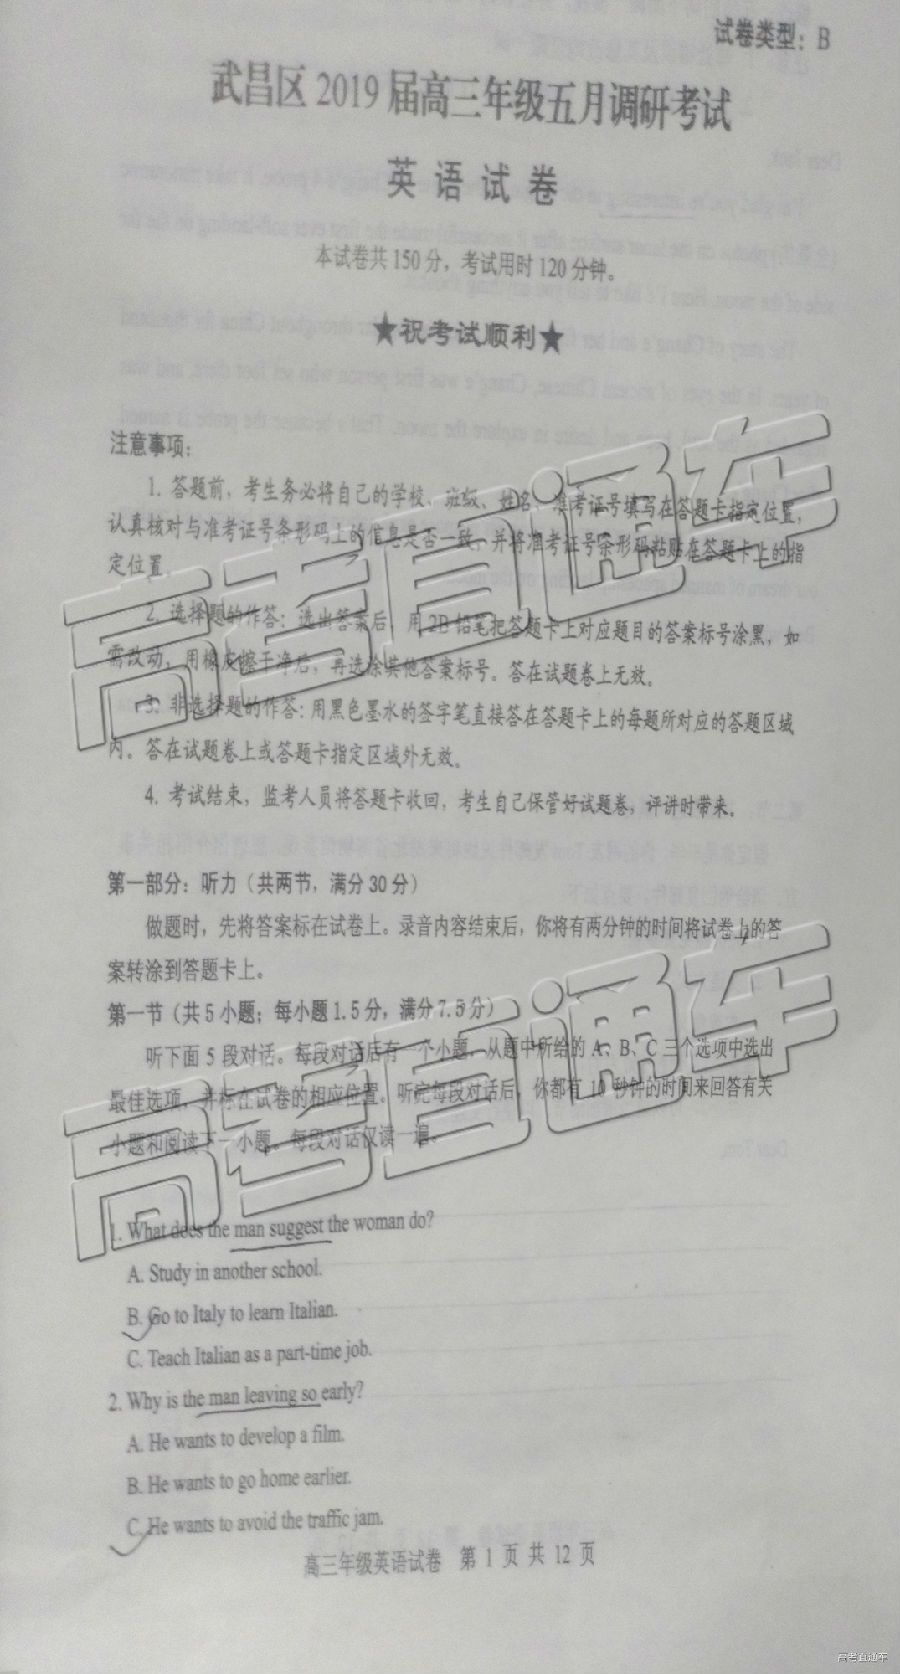 试卷类型：B
武昌区 2019 届高三年级五月调研考试
英 语 试 卷
本试卷共 150 分，考试用时 120 分钟。
★祝考试顺利★
注意事项：
1. 答题前，考生务必将自己的学校、班级、姓名、准考证号填写在答题卡指定位置，
认真核对与准考证号条形码上的信息是否一致，并将准考证号条形码粘贴在答题卡上的指
定位置。
2. 选择题的作答：选出答案后，用 2B 铅笔把答题卡上对应题目的答案标号涂黑，如
需改动，用橡皮擦干净后，再选涂其他答案标号。答在试题卷上无效。
3. 非选择题的作答：用黑色墨水的签字笔直接答在答题卡上的每题所对应的答题区域
内。答在试题卷上或答题卡指定区域外无效。
4. 考试结束，监考人员将答题卡收回，考生自己保管好试题卷，评讲时带来。
第一部分：听力（共两节，满分 30 分）
做题时，先将答案标在试卷上。录音内容结束后，你将有两分钟的时间将试卷上的答
案转涂到答题卡上。
第一节（共 5 小题；每小题 1.5 分，满分 7.5 分）
听下面 5 段对话。每段对话后有一个小题，从题中所给的 A、B、C 三个选项中选出
最佳选项，并标在试卷的相应位置。听完每段对话后，你都有 10 秒钟的时间来回答有关
小题和阅读下一小题。每段对话仅读一遍。
1. What does the man suggest the woman do?
A. Study in another school.
B. Go to Italy to learn Italian.
C. Teach Italian as a part-time job.
2. Why is the man leaving so early?
A. He wants to develop a film.
B. He wants to go home earlier.
C. He wants to avoid the traffic jam.
高三年级英语试卷 第 1 页 共 12 页
高考直通车
高考直通车
高考直通车